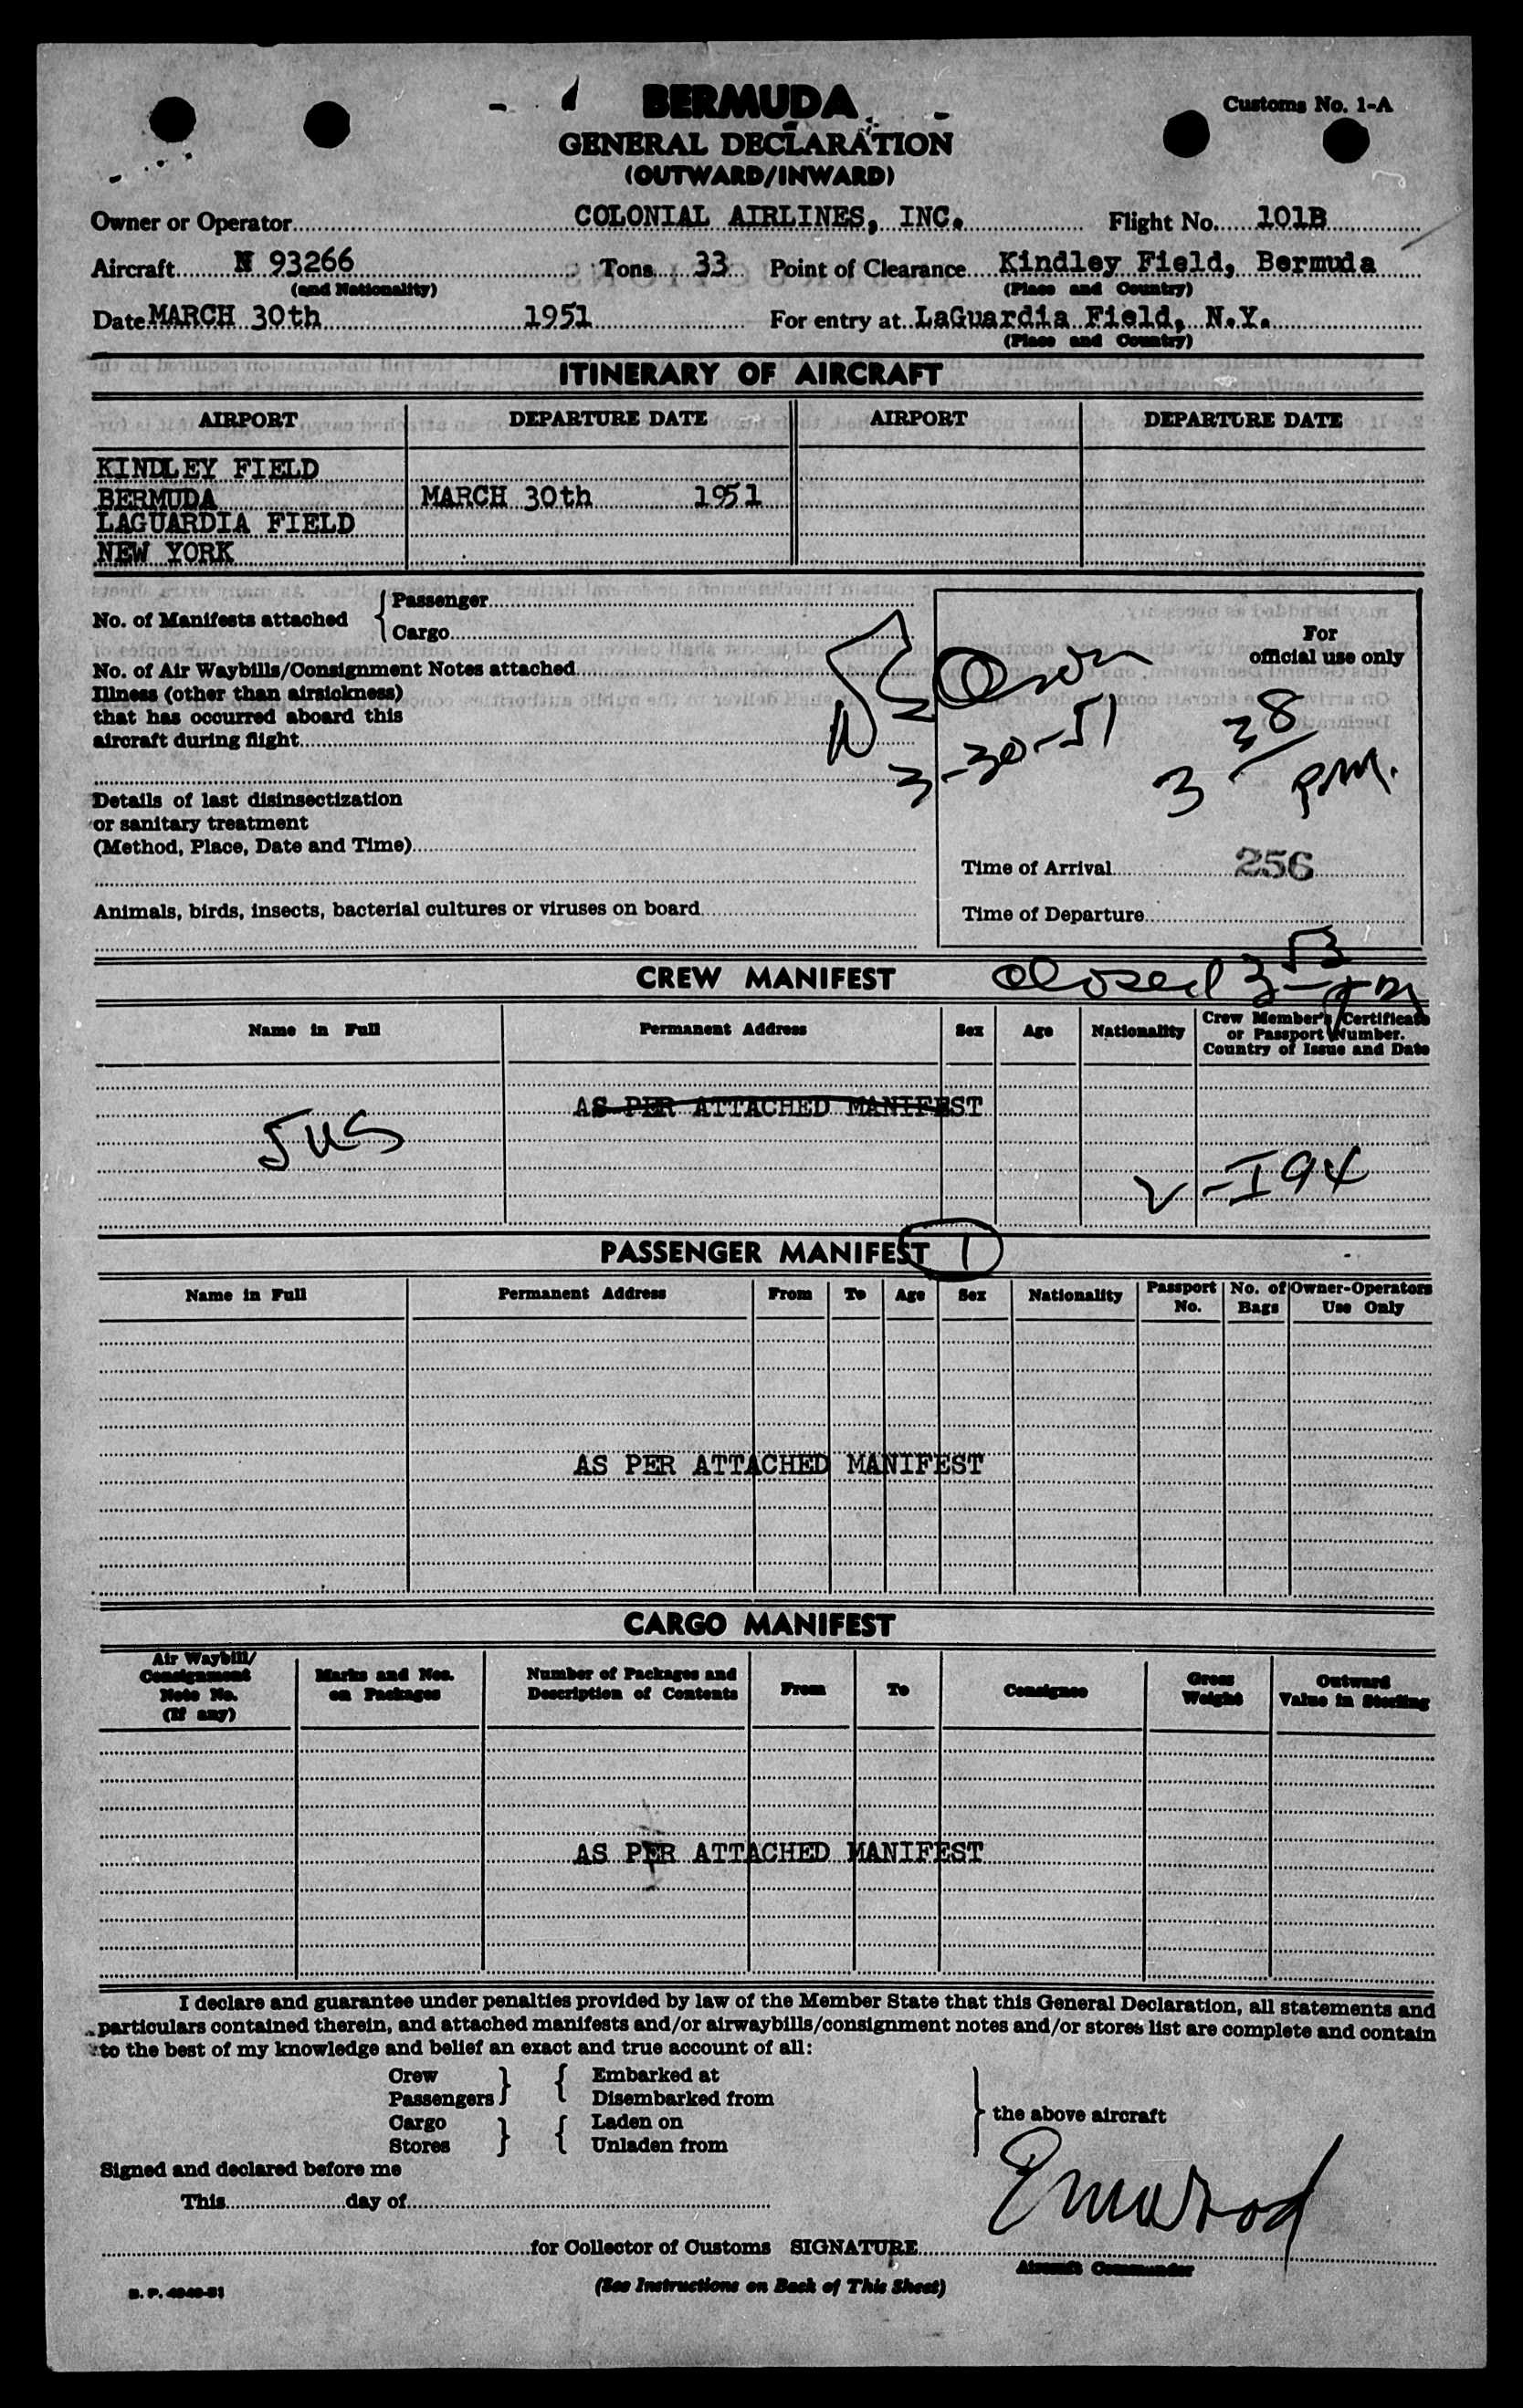 BERMUDA
Customs No. 1-A
GENERAL DECLARATION
(OUTWARD/INWARD)
Owner or Operator COLONIAL AIRLINES, INC. Flight No. 101B
Aircraft N 93266 Tons 33 Point of Clearance Kindley Field, Bermuda
(and Nationality) (Place and Country)
Date MARCH 30th 1951 For entry at LaGuardia Field, N.Y.
(Place and Country)
ITINERARY OF AIRCRAFT
AIRPORT DEPARTURE DATE AIRPORT DEPARTURE DATE
KINDLEY FIELD
BERMUDA MARCH 30th 1951
LAGUARDIA FIELD
NEW YORK
No. of Manifests attached
Passenger
Cargo
For
official use only
No. of Air Waybills/Consignment Notes attached
Illness (other than airsickness)
that has occurred aboard this
aircraft during flight
3-30-51
3 38 P.M.
Details of last disinsectization
or sanitary treatment
(Method, Place, Date and Time)
Time of Arrival 256
Animals, birds, insects, bacterial cultures or viruses on board
Time of Departure
CREW MANIFEST
closed 3 53 pm
Name in Full Permanent Address Sex Age Nationality Crew Member's Certificate
or Passport Number.
Country of Issue and Date
AS PER ATTACHED MANIFEST
5 US
V-I94
PASSENGER MANIFEST 1
Name in Full Permanent Address From To Age Sex Nationality Passport No. No. of Bags Owner-Operators Use Only
AS PER ATTACHED MANIFEST
CARGO MANIFEST
Air Waybill/
Consignment
Note No.
(If any)
Marks and Nos.
on Packages
Number of Packages and
Description of Contents
From To Consignee
Gross
Weight
Outward
Value in Sterling
AS PER ATTACHED MANIFEST
I declare and guarantee under penalties provided by law of the Member State that this General Declaration, all statements and
particulars contained therein, and attached manifests and/or airwaybills/consignment notes and/or stores list are complete and contain
to the best of my knowledge and belief an exact and true account of all:
Crew Embarked at
Passengers Disembarked from
Cargo Laden on
Stores Unladen from
the above aircraft
Signed and declared before me
This day of
for Collector of Customs SIGNATURE
Aircraft Commander
(See Instructions on Back of This Sheet)